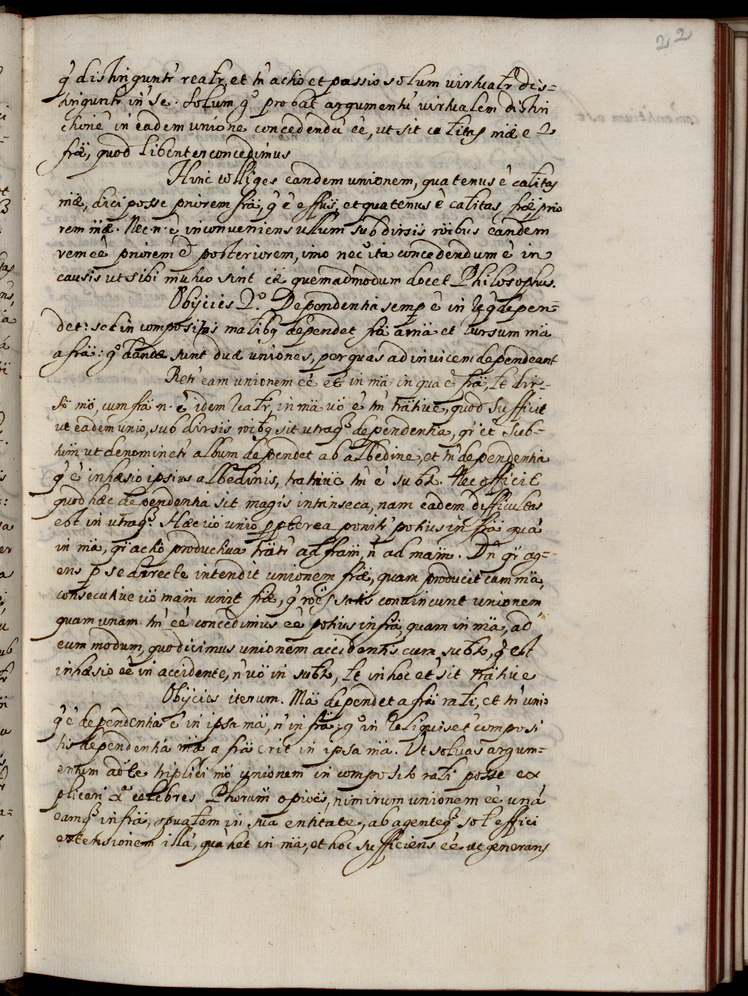 22
q̃ distinguntr̃ realr̃, et tñ actio et passio solum virtualr̃ dis-
tinguntr̃ in se. Solum g̊ probat argumentũ virtualem distin
ctionẽ in eadem unione concedendã eẽ, ut sit calitas mãe e
frẽ, quod libenter concedimus
Hinc colliges eandem unionem, quatenus ẽ calitas
mãe, dici posse priorem frã, q̃ ẽ effũs, et quatenus ẽ calitas frẽ, prio
rem mãe. Nec n. ẽ inconveniens ullum sub diṽsis rõibus eandem
rem eẽ priorem et posteriorem, imo nec ita concedendum ẽ in
causis ut sibi mutuo sint cãe quemadmodum docet Philosophus.
Objicies 2.º Dependentia semp ẽ in eo q̃ depen-
det: set in compositis malibq̃ dependet frã a mã et rursum mã
a frã: g̊ dandæ sunt duæ uniones, per quas ad invicem dependeant
Retr̃ eam unionem eẽ et in mã in qua ẽ frã, et diṽ-
so mõ, cum frã n. ẽ idem realr̃, in mã ṽo ẽ tñ trãtive, quod sufficit
ut eadem unio, sub diṽsis rõibq̃ sit utraq̃ dependentia, q̃r et sub-
tum ut denominetr̃ album dependet ab albedine, et tñ dependentia
q̃ ẽ inhæsio ipsius albedinis, trãtive tñ ẽ subto. Nec officit
quod hæc dependentia sit magis intrinseca, nam eadem difficultas
est in utraq̃. Hæc ṽo unio propterea ponitr̃ potius in frã quã
in mã, q̃r actio productiva trãtr̃ ad frãm, ñ ad mãm. Dñ q̃r ag-
ens p se directe intendit unionem frẽ, quam producit cum mã,
consecutive ṽo mãm unit frẽ, q̃ rões satis convincunt unionem
quam unam tñ eẽ concedimus eẽ potius in frã, quam in mã, ad
eum modum, quo dicimus unionem accidentis cum subto, q̃ est
inhæsio eẽ in accidente, ñ ṽo in subto, et in hoc et sit trãtive
Objicies iterum. Mã dependet a frã rali, et tñ unio
q̃ ẽ dependentia ẽ in ipsa mã, ñ in frã; g̊ in reliquis et composi
tis dependentia mã a frã erit in ipsa mã. Ut solvas argum-
entum adte triplici mõ unionem in composito rali posse ex
plicari celebres Phorum opiões, nimirum unionem eẽ unã
eamq̃ in frã, spualem in sua entitate, ab agenteq̃ sol effici
extensionem illã, quã het in mã, et hoc sufficiens eẽ ut generans